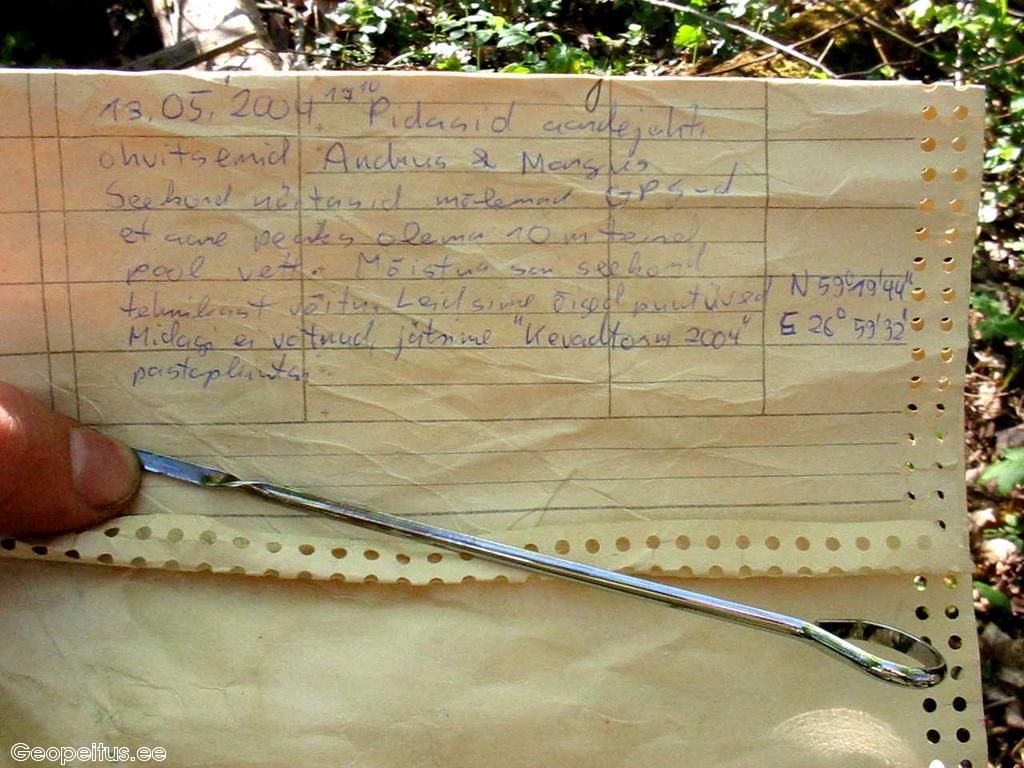 13.05.2004 17¹⁰ Pidasid aardejahti
ohvitserid Andrus & Margus
Seekord näitasid mõlemad GPS-d
et aare peaks olema 10 m teisel
pool vett. Mõistus sai seekord
tehnikast võitu. Leidsime õiged puutüved N 59°19'44"
Midagi ei võtnud, jätsime "Kevadtorm 2004" E 26° 59'32"
pastapliiatsi
Geopeitus.ee